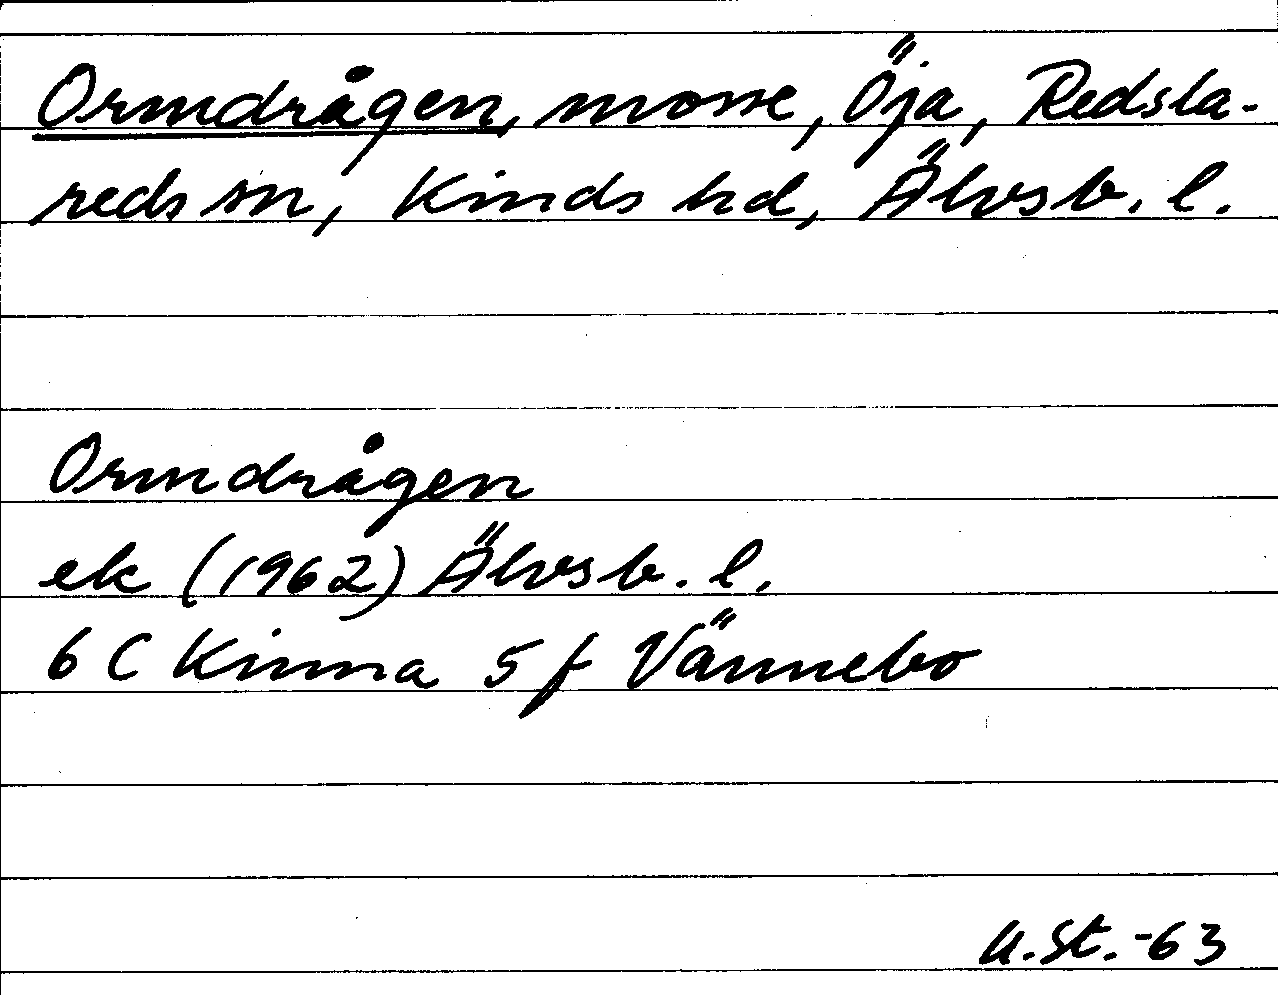 Ormdrågen, mosse, Öja, Redsla-
reds sn, Kinds hd, Älvsb. l.
Ormdrågen
ek (1962) Älvsb. l.
6 C Kinna 5 f Vännebo
U.St.-63